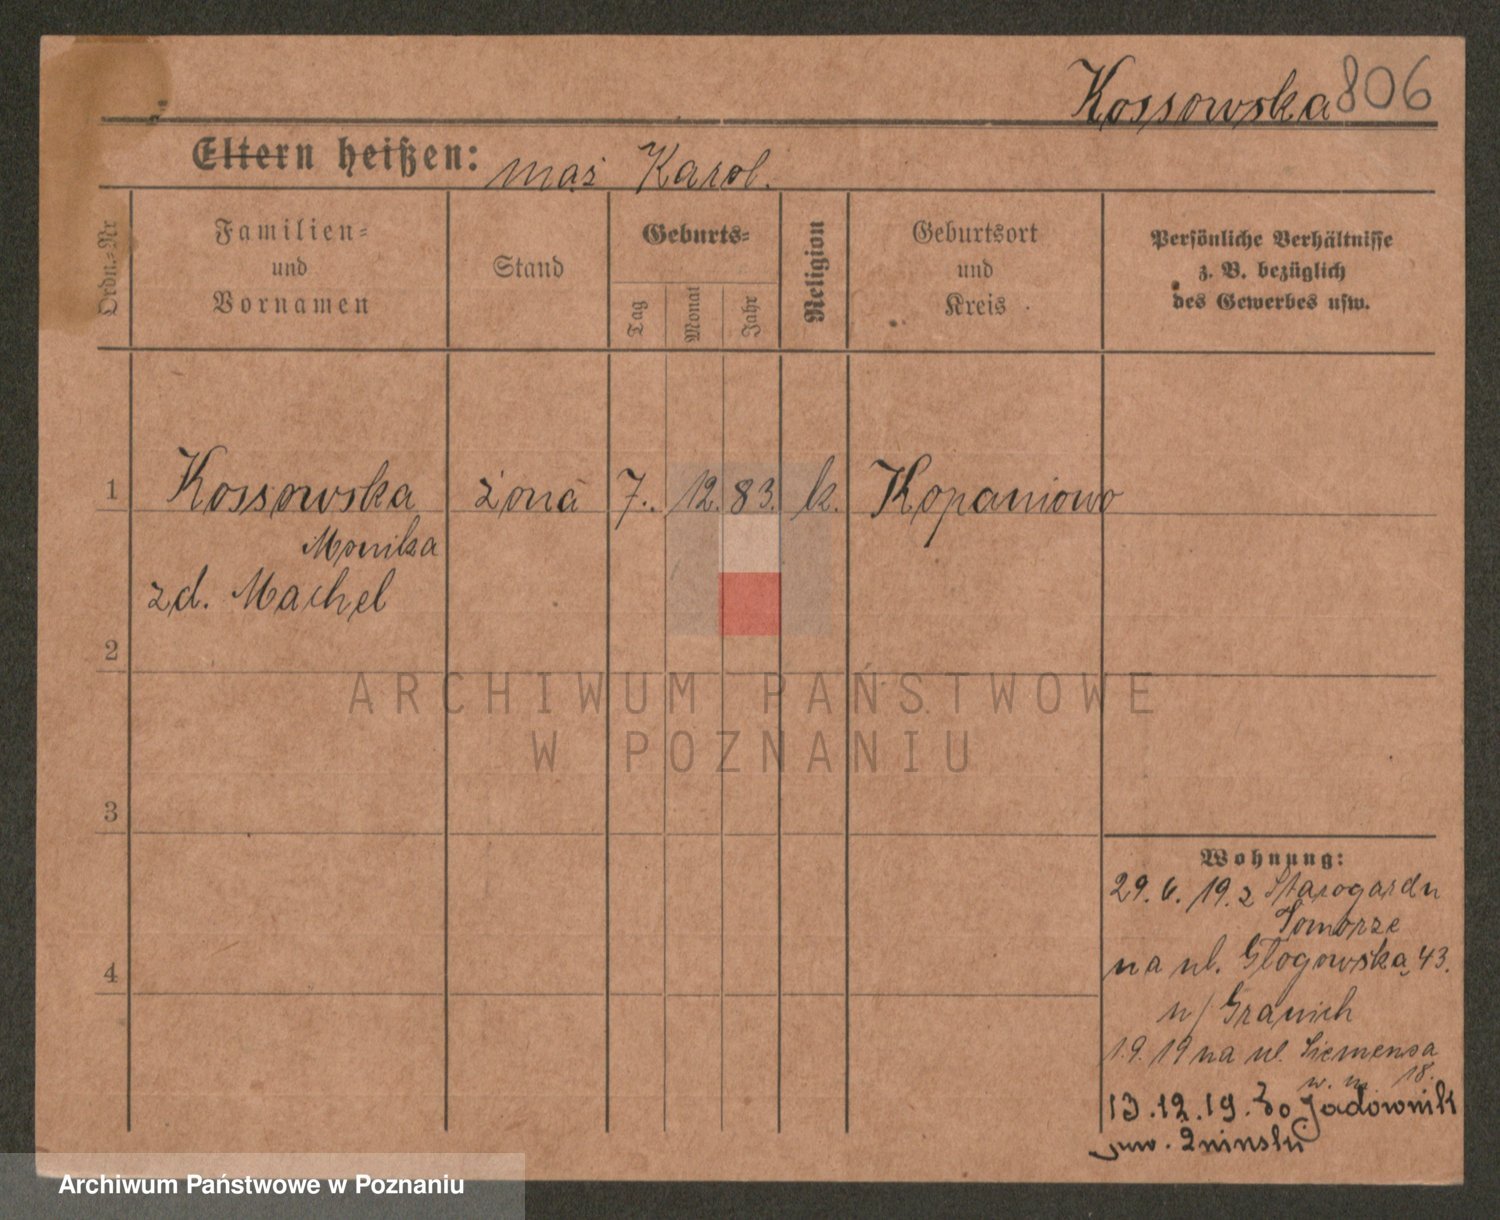 Kossowska 806
Eltern heißen: mąż Karol.
Ordn.-Nr
Familien-
und
Vornamen
Stand
Geburts-
Tag
Monat
Jahr
Religion
Geburtsort
und
Kreis
Persönliche Verhältnisse
z. B. bezüglich
des Gewerbes usw.
1 Kossowska żona 7. 12. 83. k. Kopaniowo
Monika
zd. Machel
2
ARCHIWUM PAŃSTWOWE
W POZNANIU
3
4
Wohnung:
29. 6. 19. z Starogardu
Pomorze
na ul. Głogowską 43.
u/
1.9.19 na ul. Siemensa
18.
13.12.19. Do Jadownik
pow. Żniński
Archiwum Państwowe w Poznaniu